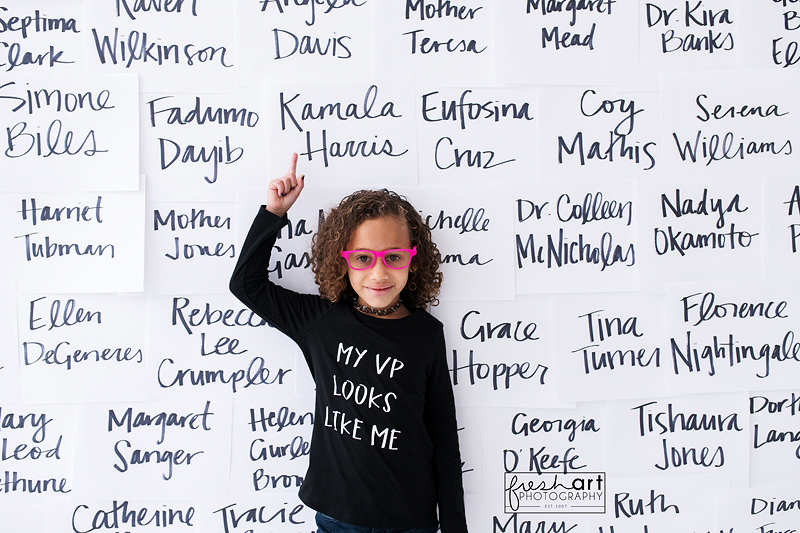 Septima
Clark
Raven
Wilkinson
Angela
Davis
Mother
Teresa
Margaret
Mead
Dr. Kira
Banks
Simone
Biles
Fadumo
Dayib
Kamala
Harris
Eufosina
Cruz
Coy
Mathis
Serena
Williams
Harriet
Tubman
Mother
Jones
Dr. Colleen
McNicholas
Nadya
Okamoto
Ellen
DeGeneres
Rebecca
Lee
Crumpler
Grace
Hopper
Tina
Turner
Florence
Nightingale
MY VP
LOOKS
LIKE ME
Margaret
Sanger
Helen
Gurley
Georgia
O'Keefe
Tishaura
Jones
Catherine
Tracie
Mary
Ruth
freshart
PHOTOGRAPHY
EST 2007